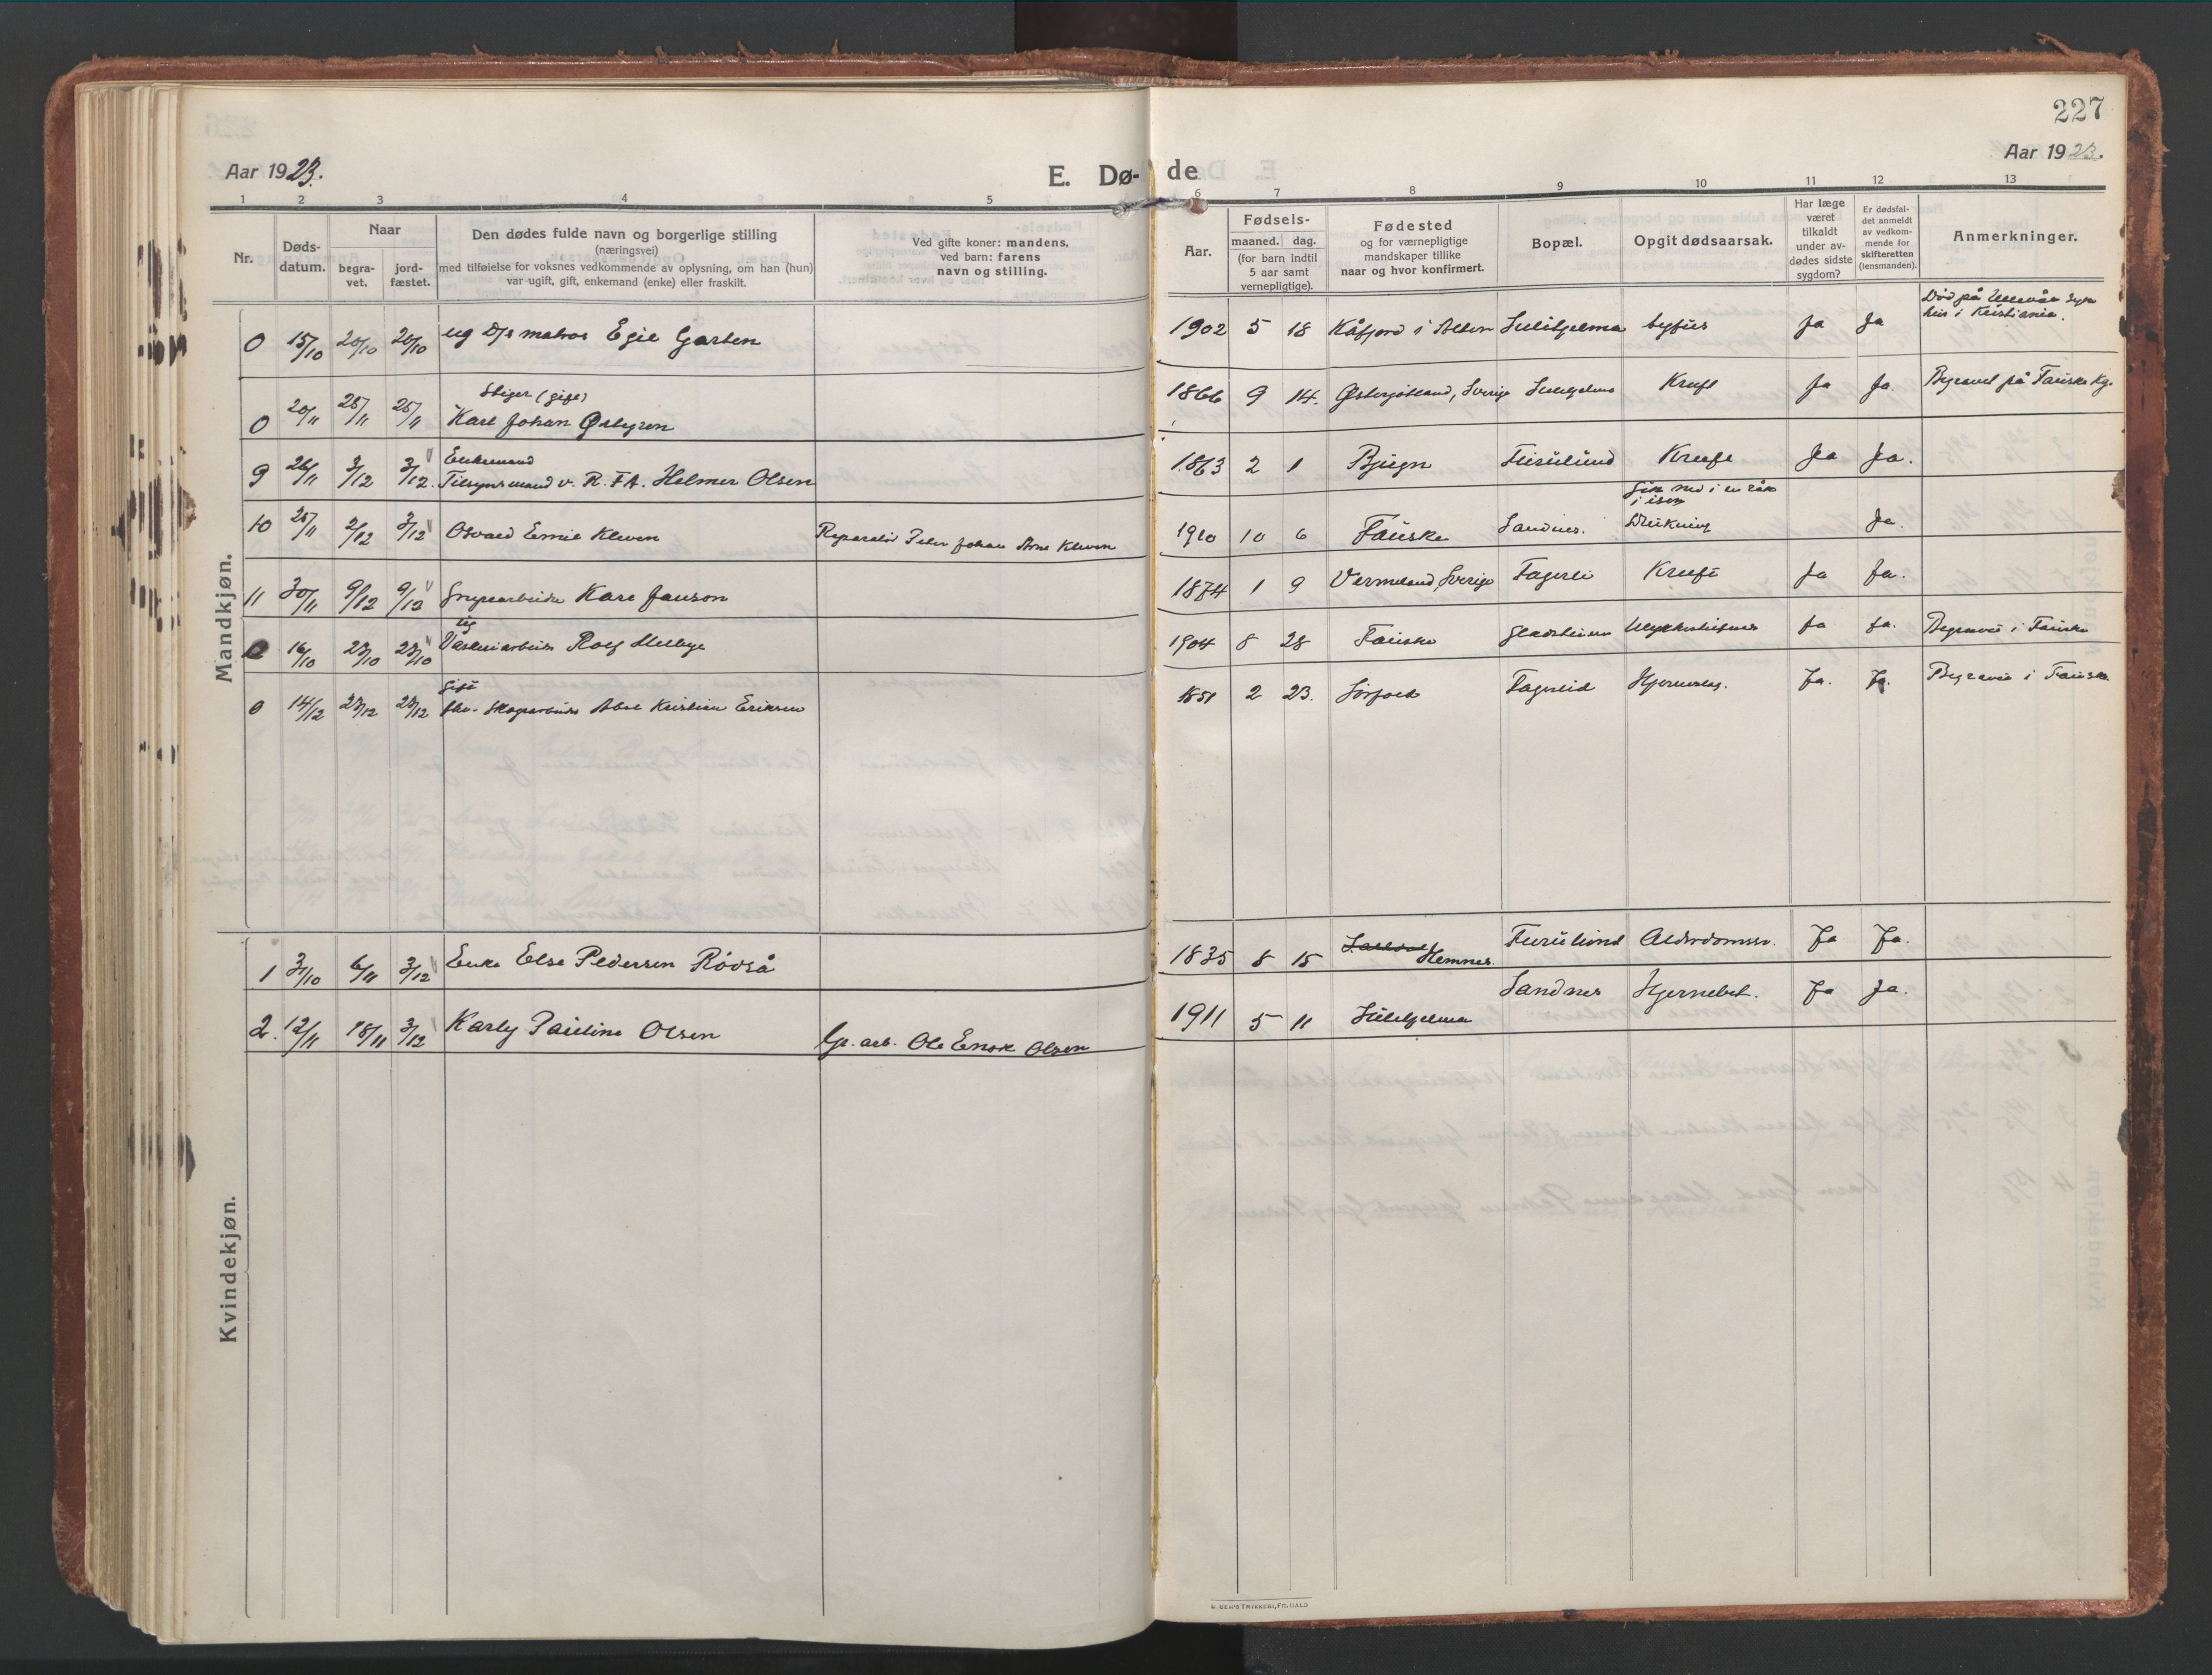 227
Aar 1923.
E. Dø-
de
Aar 1923.
1 2 3 4 5 6 7 8 9 10 11 12 13
Nr.
Døds-
datum.
Naar
begra-
vet.
jord-
fæstet.
Den dødes fulde navn og borgerlige stilling
(næringsvei)
med tilføielse for voksnes vedkommende av oplysning, om han (hun)
var ugift, gift, enkemand (enke) eller fraskilt.
Ved gifte koner: mandens,
ved barn: farens
navn og stilling.
Aar.
Fødsels-
maaned. dag.
(for barn indtil
5 aar samt
vernepligtige).
Fødested
og for værnepligtige
mandskaper tillike
naar og hvor konfirmert.
Bopæl.
Opgit dødsaarsak.
Har læge
været
tilkaldt
under av-
dødes sidste
sygdom?
Er dødsfal-
det anmeldt
av vedkom-
mende for
skifteretten
(lensmanden).
Anmerkninger.
Mandkjøn.
Død på Ullevål syke
hus i Kristiania.
0 15/10 20/10 20/10 ug D/s matros Egil Garten 1902 5 18 Kåfjord i Alten Sulitjelma tyfus Ja Ja
Stiger (gift)
0 20/11 25/11 25/11 Karl Johan Østgren 1866 9 14. Østergøtland, Sverige Sulitjelma Kreft Ja Ja. Begravet på Fauske Kg.
Enkemand
9 26/11 3/12 3/12. Tilsynsmand v. R.T.A. Helmer Olsen 1863 2 1 Bjugn Furulund Kreft Ja Ja.
Gik ned i en råk
i isen
10 25/11 2/12 3/12 Osvald Emil Kleven Reparatør Peter Johan Arne Kleven 1910 10 6 Fauske Sandnes. Drukning Ja.
11 30/11 9/12 9/12 Grubearbeider Karl Janson 1874 1 9 Vermeland, Sverige Fagerli Kreft Ja Ja.
ug
0 16/10 23/10 23/10 Vaskeriarbeider Rolf Melbye 1904 8 28 Fauske Gladsheim Ulykkestilfælde Ja Ja. Begravet i Fauske
Gift
0 14/12 23/12 23/12 fhv. Skogarbeider Abel Kristian Eriksen 1851 2 23. Sørfold Fagerlid Hjerneslag. Ja. Ja. Begravet i Fauske
Kvindekjøn.
1 31/10 6/11 3/12 Enke Else Pedersen Rødså 1835 8 15 Hemnes. Furulund Alderdomssv. Ja Ja.
2. 12/11 18/11 3/12 Karly Pauline Olsen Gr. arb. Ole Enok Olsen 1911 5 11 Sulitjelma Sandnes Hjernebet. Ja Ja.
E. SEM'S TRYKKERI, FR.HALD